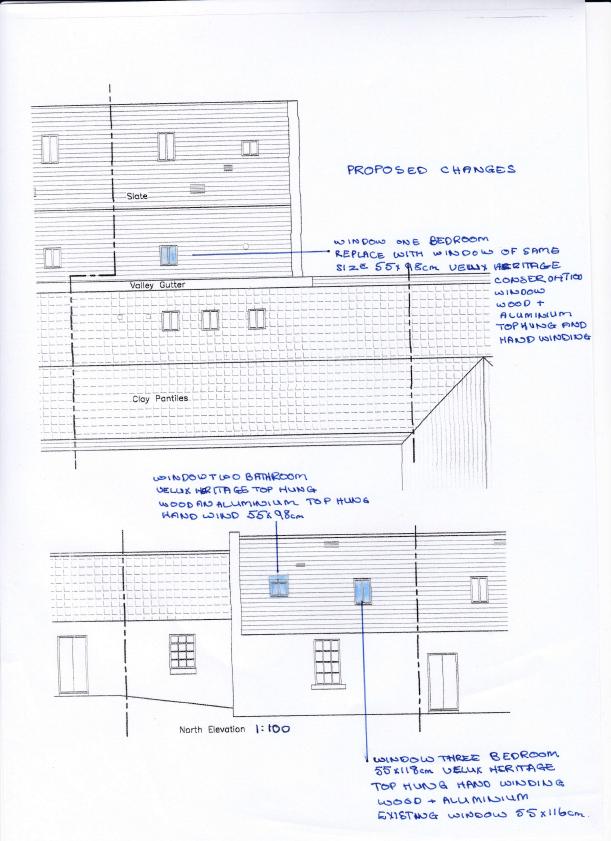 PROPOSED CHANGES
Slate
WINDOW ONE BEDROOM
REPLACE WITH WINDOW OF SAME
SIZE 55x98cm VELUX HERITAGE
CONSERVATION
WINDOW
WOOD +
ALUMINIUM
TOP HUNG AND
HAND WINDING
Valley Gutter
Clay Pantiles
WINDOW TWO BATHROOM
VELUX HERITAGE TOP HUNG
WOOD AN ALUMINIUM TOP HUNG
HAND WIND 55x98cm
North Elevation 1:100
WINDOW THREE BEDROOM
55x118cm VELUX HERITAGE
TOP HUNG HAND WINDING
WOOD + ALUMINIUM
EXISTING WINDOW 55x116cm.